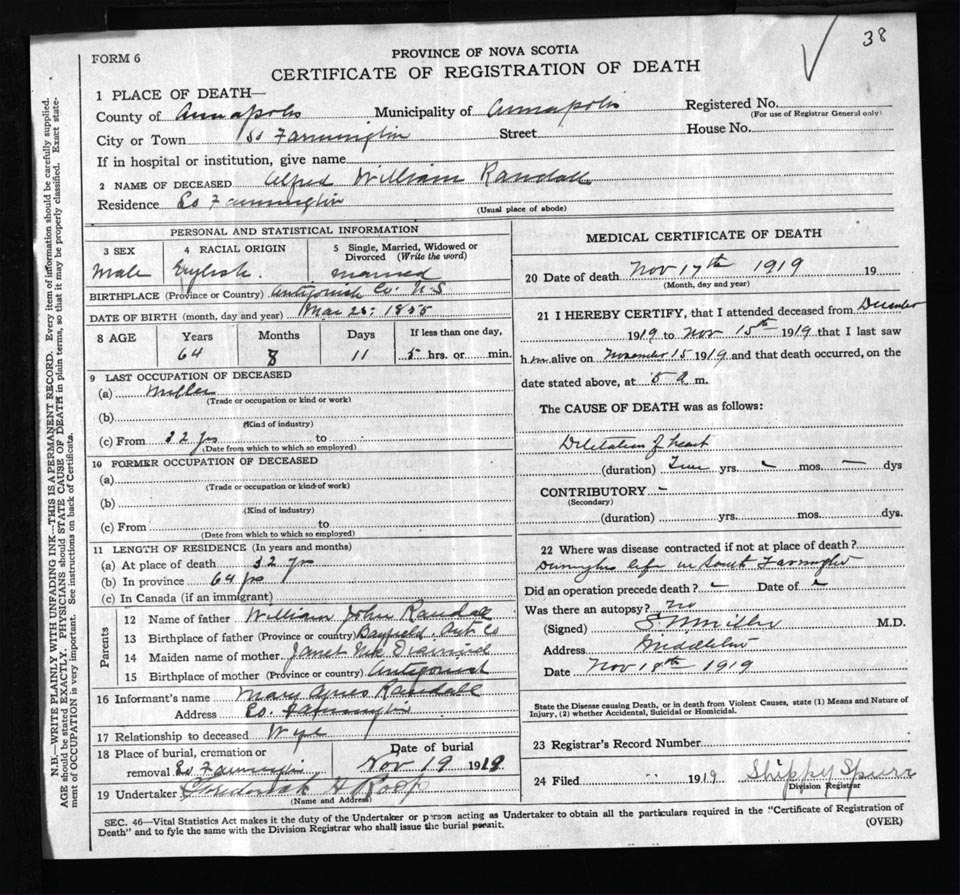 38
FORM 6
PROVINCE OF NOVA SCOTIA
CERTIFICATE OF REGISTRATION OF DEATH
1 PLACE OF DEATH—
County of Annapolis Municipality of Annapolis Registered No.
(For use of Registrar General only)
City or Town So Farmington Street House No.
If in hospital or institution, give name
2 NAME OF DECEASED Alfred William Randall
Residence So Farmington
(Usual place of abode)
PERSONAL AND STATISTICAL INFORMATION
3 SEX 4 RACIAL ORIGIN 5 Single, Married, Widowed or Divorced (Write the word)
Male English. married
BIRTHPLACE (Province or Country) Antigonish Co. N.S
DATE OF BIRTH (month, day and year) Mar 1855
8 AGE Years Months Days If less than one day,
64 8 11 hrs. or min.
9 LAST OCCUPATION OF DECEASED
(a) Miller
(Trade or occupation or kind or work)
(b)
(Kind of industry)
(c) From 32 yrs to
(Date from which to which so employed)
10 FORMER OCCUPATION OF DECEASED
(a)
(Trade or occupation or kind of work)
(b)
(Kind of industry)
(c) From to
(Date from which to which so employed)
11 LENGTH OF RESIDENCE (In years and months)
(a) At place of death 32 yrs
(b) In province 64 yrs
(c) In Canada (if an immigrant)
Parents
12 Name of father William John Randall
13 Birthplace of father (Province or country) Bayfield Ant Co
14 Maiden name of mother Janet
15 Birthplace of mother (Province or country) Antigonish
16 Informant's name Mary Agnes Randall
Address So. Farmington
17 Relationship to deceased Wife
18 Place of burial, cremation or Date of burial
removal So Farmington Nov 19 1919
19 Undertaker H Roop
(Name and Address)
MEDICAL CERTIFICATE OF DEATH
20 Date of death Nov 17th 1919 19
(Month, day and year)
21 I HEREBY CERTIFY, that I attended deceased from December
1919 to Nov 15th 1919 that I last saw
him alive on November 15 1919 and that death occurred, on the
date stated above, at 5 a m.
The CAUSE OF DEATH was as follows:
Dilitation of heart
(duration) yrs. mos. dys
CONTRIBUTORY
(Secondary)
(duration) yrs. mos. dys.
22 Where was disease contracted if not at place of death?
life in South Farmington
Did an operation precede death? Date of
Was there an autopsy? no
(Signed) Miller M.D.
Address Middleton
Date Nov 18th 1919
State the Disease causing Death, or in death from Violent Causes, state (1) Means and Nature of
Injury, (2) whether Accidental, Suicidal or Homicidal.
23 Registrar's Record Number
24 Filed " " 1919 Shippy Spurr
Division Registrar
SEC. 46—Vital Statistics Act makes it the duty of the Undertaker or person acting as Undertaker to obtain all the particulars required in the "Certificate of Registration of
Death" and to fyle the same with the Division Registrar who shall issue the burial permit. (OVER)
N.B.—WRITE PLAINLY WITH UNFADING INK—THIS IS A PERMANENT RECORD. Every item of information should be carefully supplied.
AGE should be stated EXACTLY. PHYSICIANS should STATE CAUSE OF DEATH in plain terms, so that it may be properly classified. Exact state-
ment of OCCUPATION is very important. See instructions on back of Certificate.